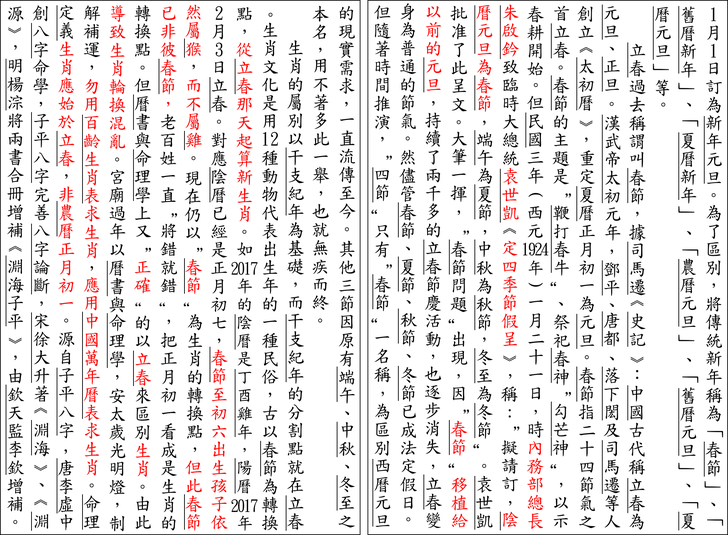 1月1日訂為新年元旦。為了區別，將傳統新年稱為「春節」、「
舊曆新年」、「夏曆新年」、「農曆元旦」、「舊曆元旦」、「夏
曆元旦」等。
立春過去稱謂叫春節，據司馬遷《史記》：中國古代稱立春為
元旦、正旦。漢武帝太初元年，鄧平、唐都、落下閎及司馬遷等人
創立《太初曆》，重定夏曆正月初一為元旦。春節指二十四節氣之
首立春。春節的主題是〞鞭打春牛〝、祭祀春神〞勾芒神〝，以示
春耕開始。但民國三年（西元1924年）一月二十一日，時內務部總長
朱啟鈐致臨時大總統袁世凱《定四季節假呈》，稱：〞擬請訂，陰
曆元旦為春節，端午為夏節，中秋為秋節，冬至為冬節〝。袁世凱
批准了此呈文。大筆一揮，〞春節問題〝出現，因〞春節〝移植給
以前的元旦，持續了兩千多的立春節慶活動，也逐步消失，立春變
身為普通的節氣。然儘管春節、夏節、秋節、冬節已成法定假日。
但隨著時間推演，〞四節〝只有〞春節〝一名稱，為區別西曆元旦
的現實需求，一直流傳至今。其他三節因原有端午、中秋、冬至之
本名，用不著多此一舉，也就無疾而終。
生肖的屬別以干支紀年為基礎，而干支紀年的分割點就在立春
。生肖文化是用12種動物代表出生年的一種民俗，古以春節為轉換
點，從立春那天起算新生肖。如2017年的陰曆是丁酉雞年，陽曆2017年
2月3日立春。對應陰曆已經是正月初七，春節至初六出生孩子依
然屬猴，而不屬雞。現在仍以〞春節〝為生肖的轉換點，但此春節
已非彼春節，老百姓一直〞將錯就錯〝，把正月初一看成是生肖的
轉換點。但曆書與命理學上又〞正確〝的以立春來區別生肖。由此
導致生肖輪換混亂。宮廟過年以曆書與命理學，安太歲光明燈，制
解補運，勿用百齡生肖表求生肖，應用中國萬年曆表求生肖。命理
定義生肖應始於立春，非農曆正月初一。源自子平八字，唐李虛中
創八字命學，子平八字完善八字論斷，宋徐大升著《淵海》、《淵
源》，明楊淙將兩書合冊增補《淵海子平》，由欽天監李欽增補。